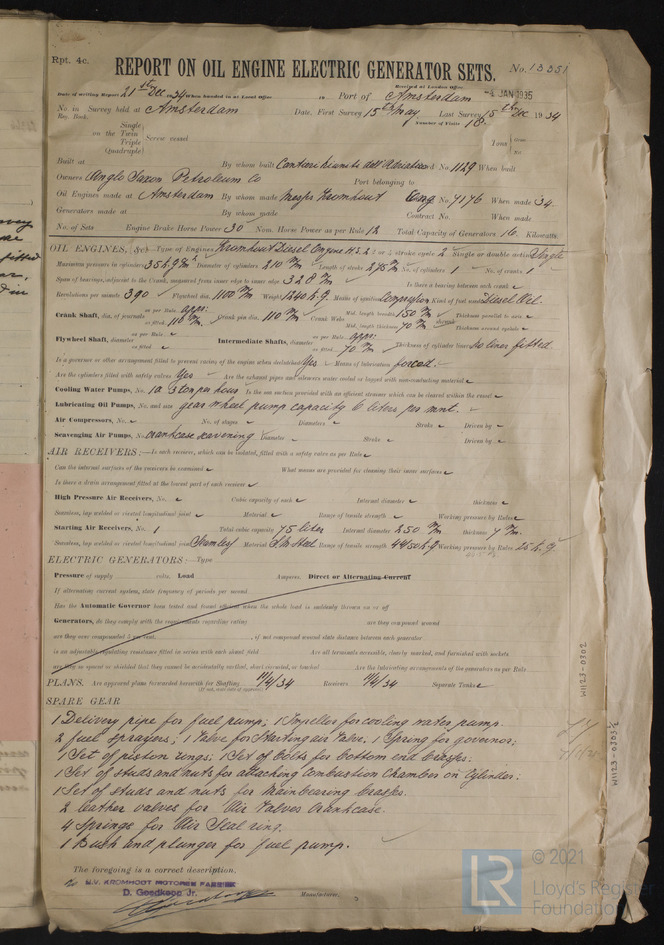 Rpt. 4c.
REPORT ON OIL ENGINE ELECTRIC GENERATOR SETS.
No. 13351
Received at London Office
-4 JAN 1935
Date of writing Report 21st Dec 34 When handed in at Local Office
Port of Amsterdam
No. in Survey held at Amsterdam Date, First Survey 15th May Last Survey 15th Dec 1934
Reg. Book. Number of Visits 18
Single
on the Twin
Triple
Quadruple
Screw vessel
Tons
Built at By whom built Cantieri Riuniti dell'Adriatico Yard No. 1129 When built
Owners Anglo Saxon Petroleum Co Port belonging to
Oil Engines made at Amsterdam By whom made Messrs Kromhout Eng No. 7176 When made 34
Generators made at By whom made Contract No. When made
No. of Sets Engine Brake Horse Power 30 Nom. Horse Power as per Rule 12 Total Capacity of Generators 16 Kilowatts
OIL ENGINES, &c.—Type of Engines Kromhout Diesel Engine H.S.1 2 or 4 stroke cycle 2 Single or double acting Single
Maximum pressure in cylinders 35 Diameter of cylinders 210 m/m Length of stroke 275 m/m No. of cylinders 1 No. of cranks 1
Span of bearings, adjacent to the Crank, measured from inner edge to inner edge 328 m/m Is there a bearing between each crank
Revolutions per minute 390 Flywheel dia. 1100 m/m Weight 1240 k.g. Means of ignition Compression Kind of fuel used Diesel Oil
Crank Shaft, dia. of journals as per Rule appr. as fitted 110 m/m Crank pin dia. 110 m/m Crank Webs Mid. length breadth 150 m/m Thickness parallel to axis
Mid. length thickness 70 m/m shrunk Thickness around eyehole
Flywheel Shaft, diameter as per Rule as fitted Intermediate Shafts, diameter as per Rule appr. as fitted 70 m/m Thickness of cylinder liner No liner fitted
Is a governor or other arrangement fitted to prevent racing of the engine when declutched Yes Means of lubrication forced
Are the cylinders fitted with safety valves Yes Are the exhaust pipes and silencers water cooled or lagged with non-conducting material
Cooling Water Pumps, No. 1 a 3 ton per hour Is the sea suction provided with an efficient strainer which can be cleared within the vessel
Lubricating Oil Pumps, No. and size gear wheel pump capacity 6 liters per mnt.
Air Compressors, No. No. of stages Diameters Stroke Driven by
Scavenging Air Pumps, No. crankcase scavening Diameter Stroke Driven by
AIR RECEIVERS:—Is each receiver, which can be isolated, fitted with a safety valve as per Rule
Can the internal surfaces of the receivers be examined What means are provided for cleaning their inner surfaces
Is there a drain arrangement fitted at the lowest part of each receiver
High Pressure Air Receivers, No. Cubic capacity of each Internal diameter thickness
Seamless, lap welded or riveted longitudinal joint Material Range of tensile strength Working pressure by Rules
Starting Air Receivers, No. 1 Total cubic capacity 75 liter Internal diameter 250 m/m Thickness 7 m/m
Seamless, lap welded or riveted longitudinal joint Seamless Material S.M. Steel Range of tensile strength 44/50 k.g. Working pressure by Rules 25 k.g.
ELECTRIC GENERATORS:—Type
Pressure of supply volts. Load Amperes. Direct or Alternating Current
If alternating current system, state frequency of periods per second
Has the Automatic Governor been tested and found efficient when the whole load is suddenly thrown on or off
Generators, do they comply with the requirements regarding rating are they compound wound
are they over compounded 5 per cent. , if not compound wound state distance between each generator
is an adjustable regulating resistance fitted in series with each shunt field Are all terminals accessible, clearly marked, and furnished with sockets
are they so spaced or shielded that they cannot be accidentally earthed, short circuited, or touched Are the lubricating arrangements of the generators as per Rule
PLANS. Are approved plans forwarded herewith for Shafting 11/4/34 Receivers 9/4/34 Separate Tanks
(If not, state date of approval)
SPARE GEAR
1 Delivery pipe for fuel pump; 1 Impeller for cooling water pump.
2 fuel sprayers; 1 Valve for Starting air Valve; 1 Spring for governor;
1 Set of piston rings; 1 Set of bolts for bottom end brasps;
1 Set of studs and nuts for attaching Combustion Chamber on Cylinder;
1 Set of studs and nuts for Mainbearing brasps.
2 leather valves for Air Valves crankcase.
4 Springs for Air Seal ring.
1 Bush and plunger for fuel pump.
The foregoing is a correct description.
N.V. KROMHOUT MOTOREN FABRIEK
D. Goedkoop Jr.
Manufacturer.
W1123-0302
W1123-0303½
LR
© 2021
Lloyd's Register
Foundation